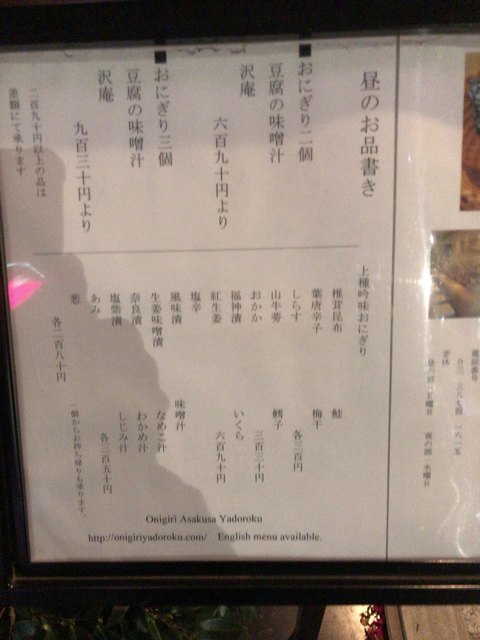 昼のお品書き
■おにぎり二個
豆腐の味噌汁
沢庵
六百九十円より
■おにぎり三個
豆腐の味噌汁
沢庵
九百三十円より
二百九十円以上の品は
差額にて承ります
上種吟味おにぎり
椎茸昆布
葉唐辛子
しらす
山牛蒡
おかか
福神漬
紅生姜
塩辛
風味漬
生姜味噌漬
奈良漬
塩紫漬
あみ
葱
各二百八十円
鮭
梅干
各三百円
鱈子
三百三十円
いくら
六百九十円
味噌汁
なめこ汁
わかめ汁
しじみ汁
各三百五十円
一個からお持ち帰りも承ります。
Onigiri Asakusa Yadoroku
http://onigiriyadoroku.com/ English menu available.
電話番号
定休
夜の部 水曜日